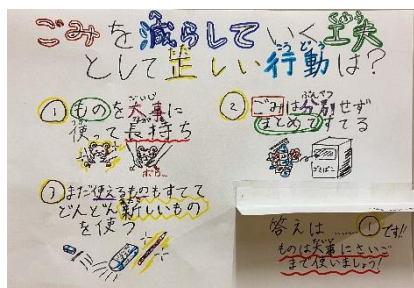 ごみを減らしていく工夫
くふう
として正しい行動は?
こうどう
① ものを大事に
だいじ
使って長持ち
② ごみは分別せず
ぶんべつ
まとめてすてる
ごみばこ
③ まだ使えるものもすてて
どんどん新しいもの
を使う
答えは……①です!!
ものは大事にさいご
まで使いましょう!